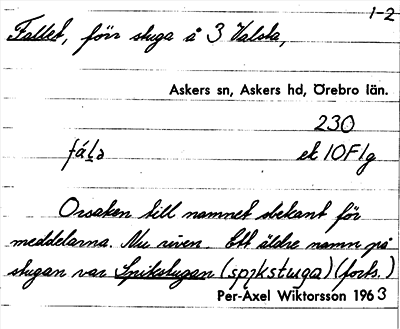 1-2
Fallet, förr stuga å 3 Valsta,
Askers sn, Askers hd, Örebro län.
230
fáḷə ek 10F1g
Orsaken till namnet obekant för
meddelarna. Nu riven. Ett äldre namn på
stugan var Spikstugan (spįkstuga) (forts.)
Per-Axel Wiktorsson 1963